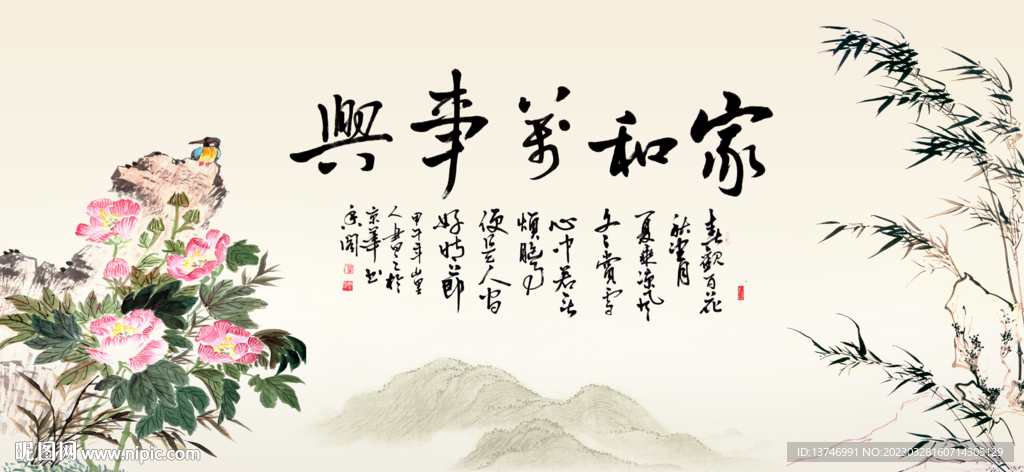 家和萬事興
春觀百花
秋望月
夏爽凉風
冬賞雪
心中若無
煩腦事
便是人間
好時節
甲午年山里
人書於
京華
昵图网 www.nipic.com
ID:13746991 NO:20230328160714309129